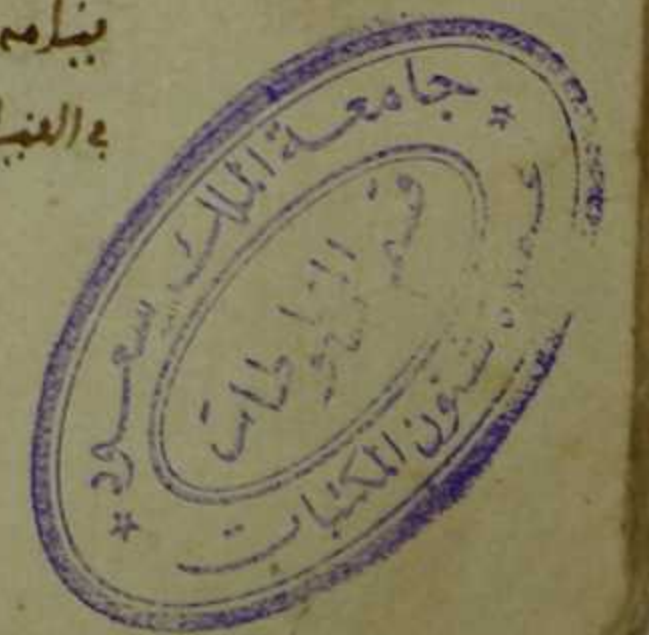 في
* جامعة الملك سعود *
عمادة شئون المكتبات
قسم المخطوطات